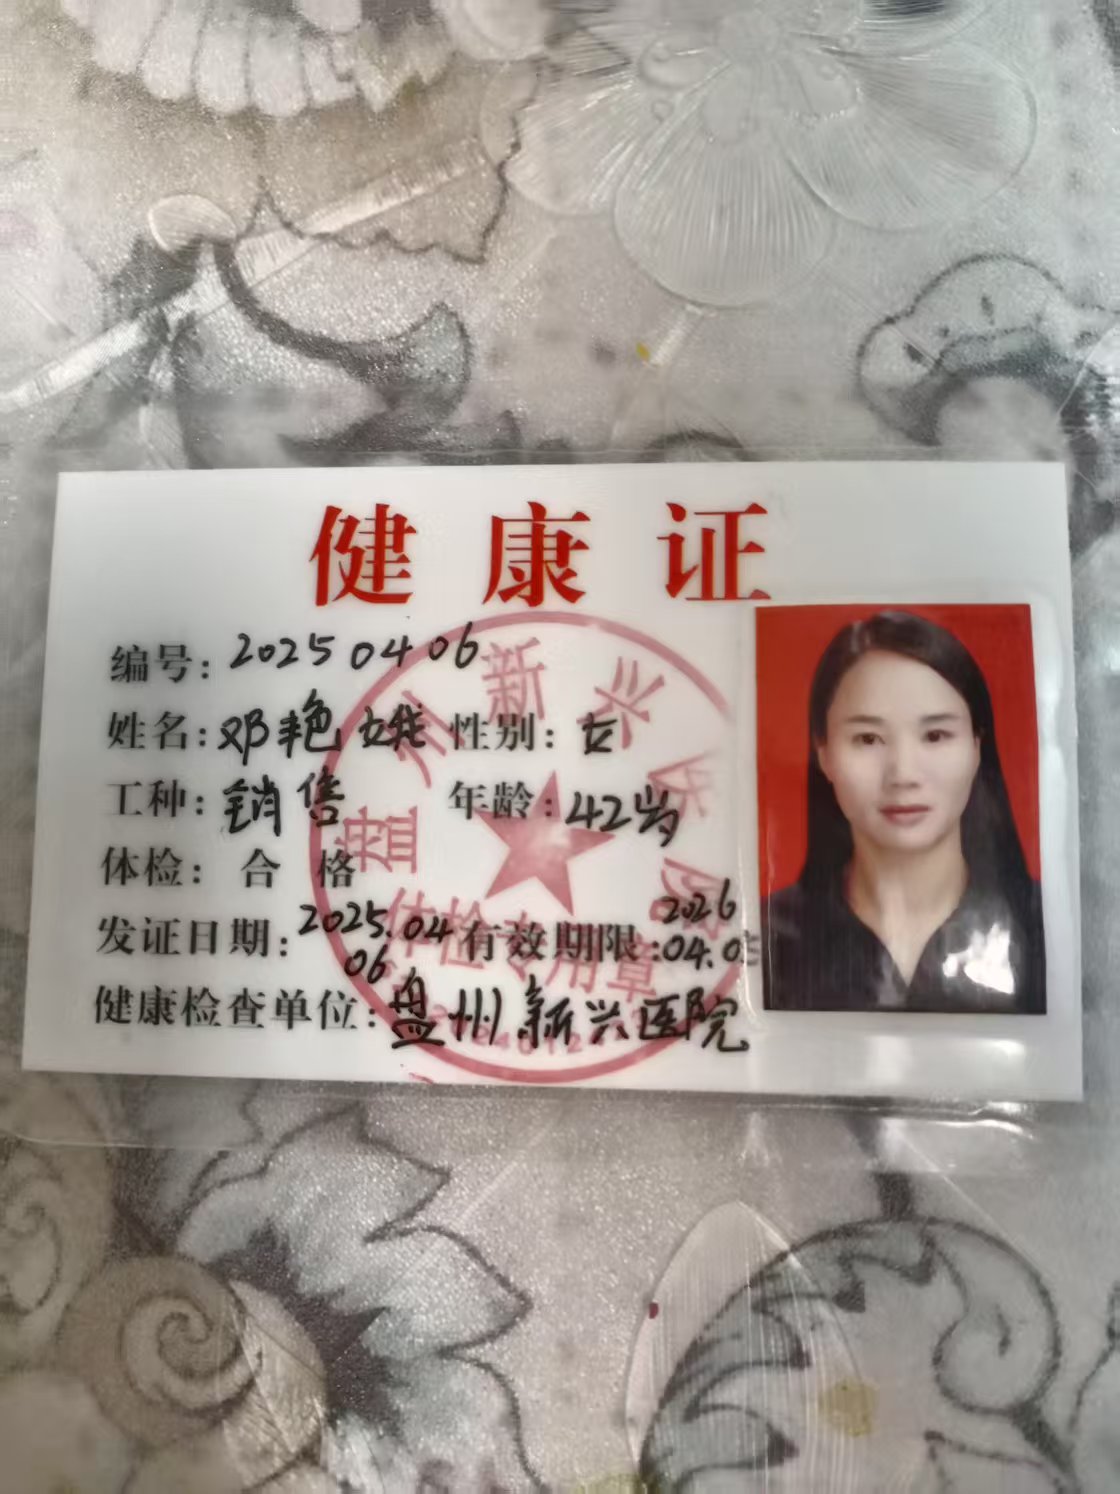 健康证
编号：20250406
姓名：邓艳娥 性别：女
工种：销售 年龄：42岁
体检：合格
发证日期：2025.04.06 有效期限：2026.04.05
健康检查单位：盘州新兴医院
盘州新兴医院
体检专用章